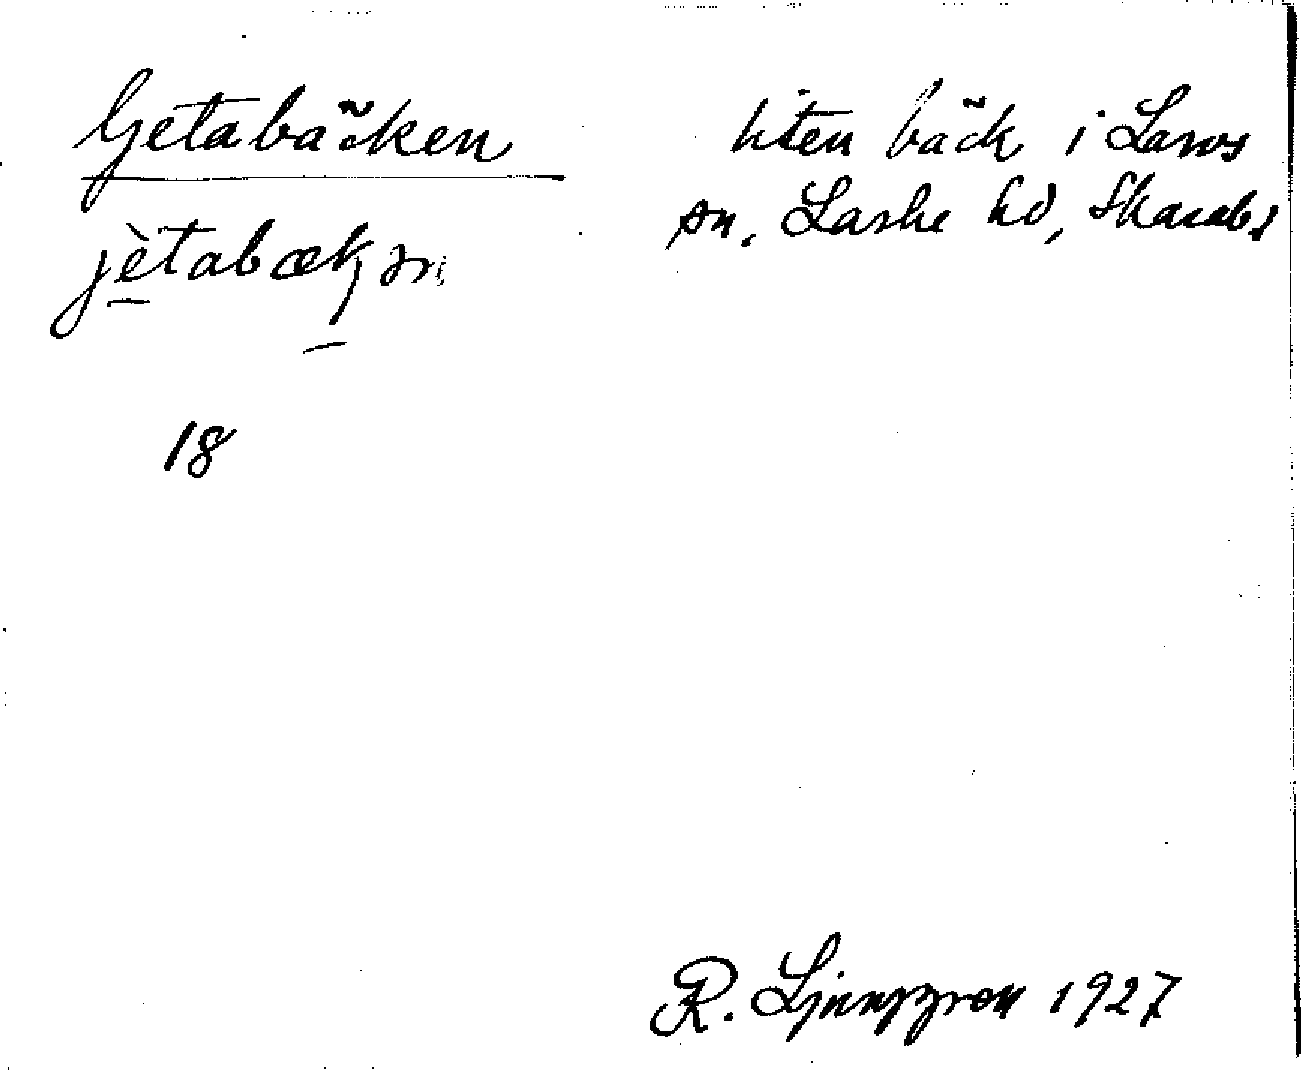 Getabäcken
liten bäck i Larvs
sn, Laske hd, Skarabs
jètabækən
18
R. Ljunggren 1927